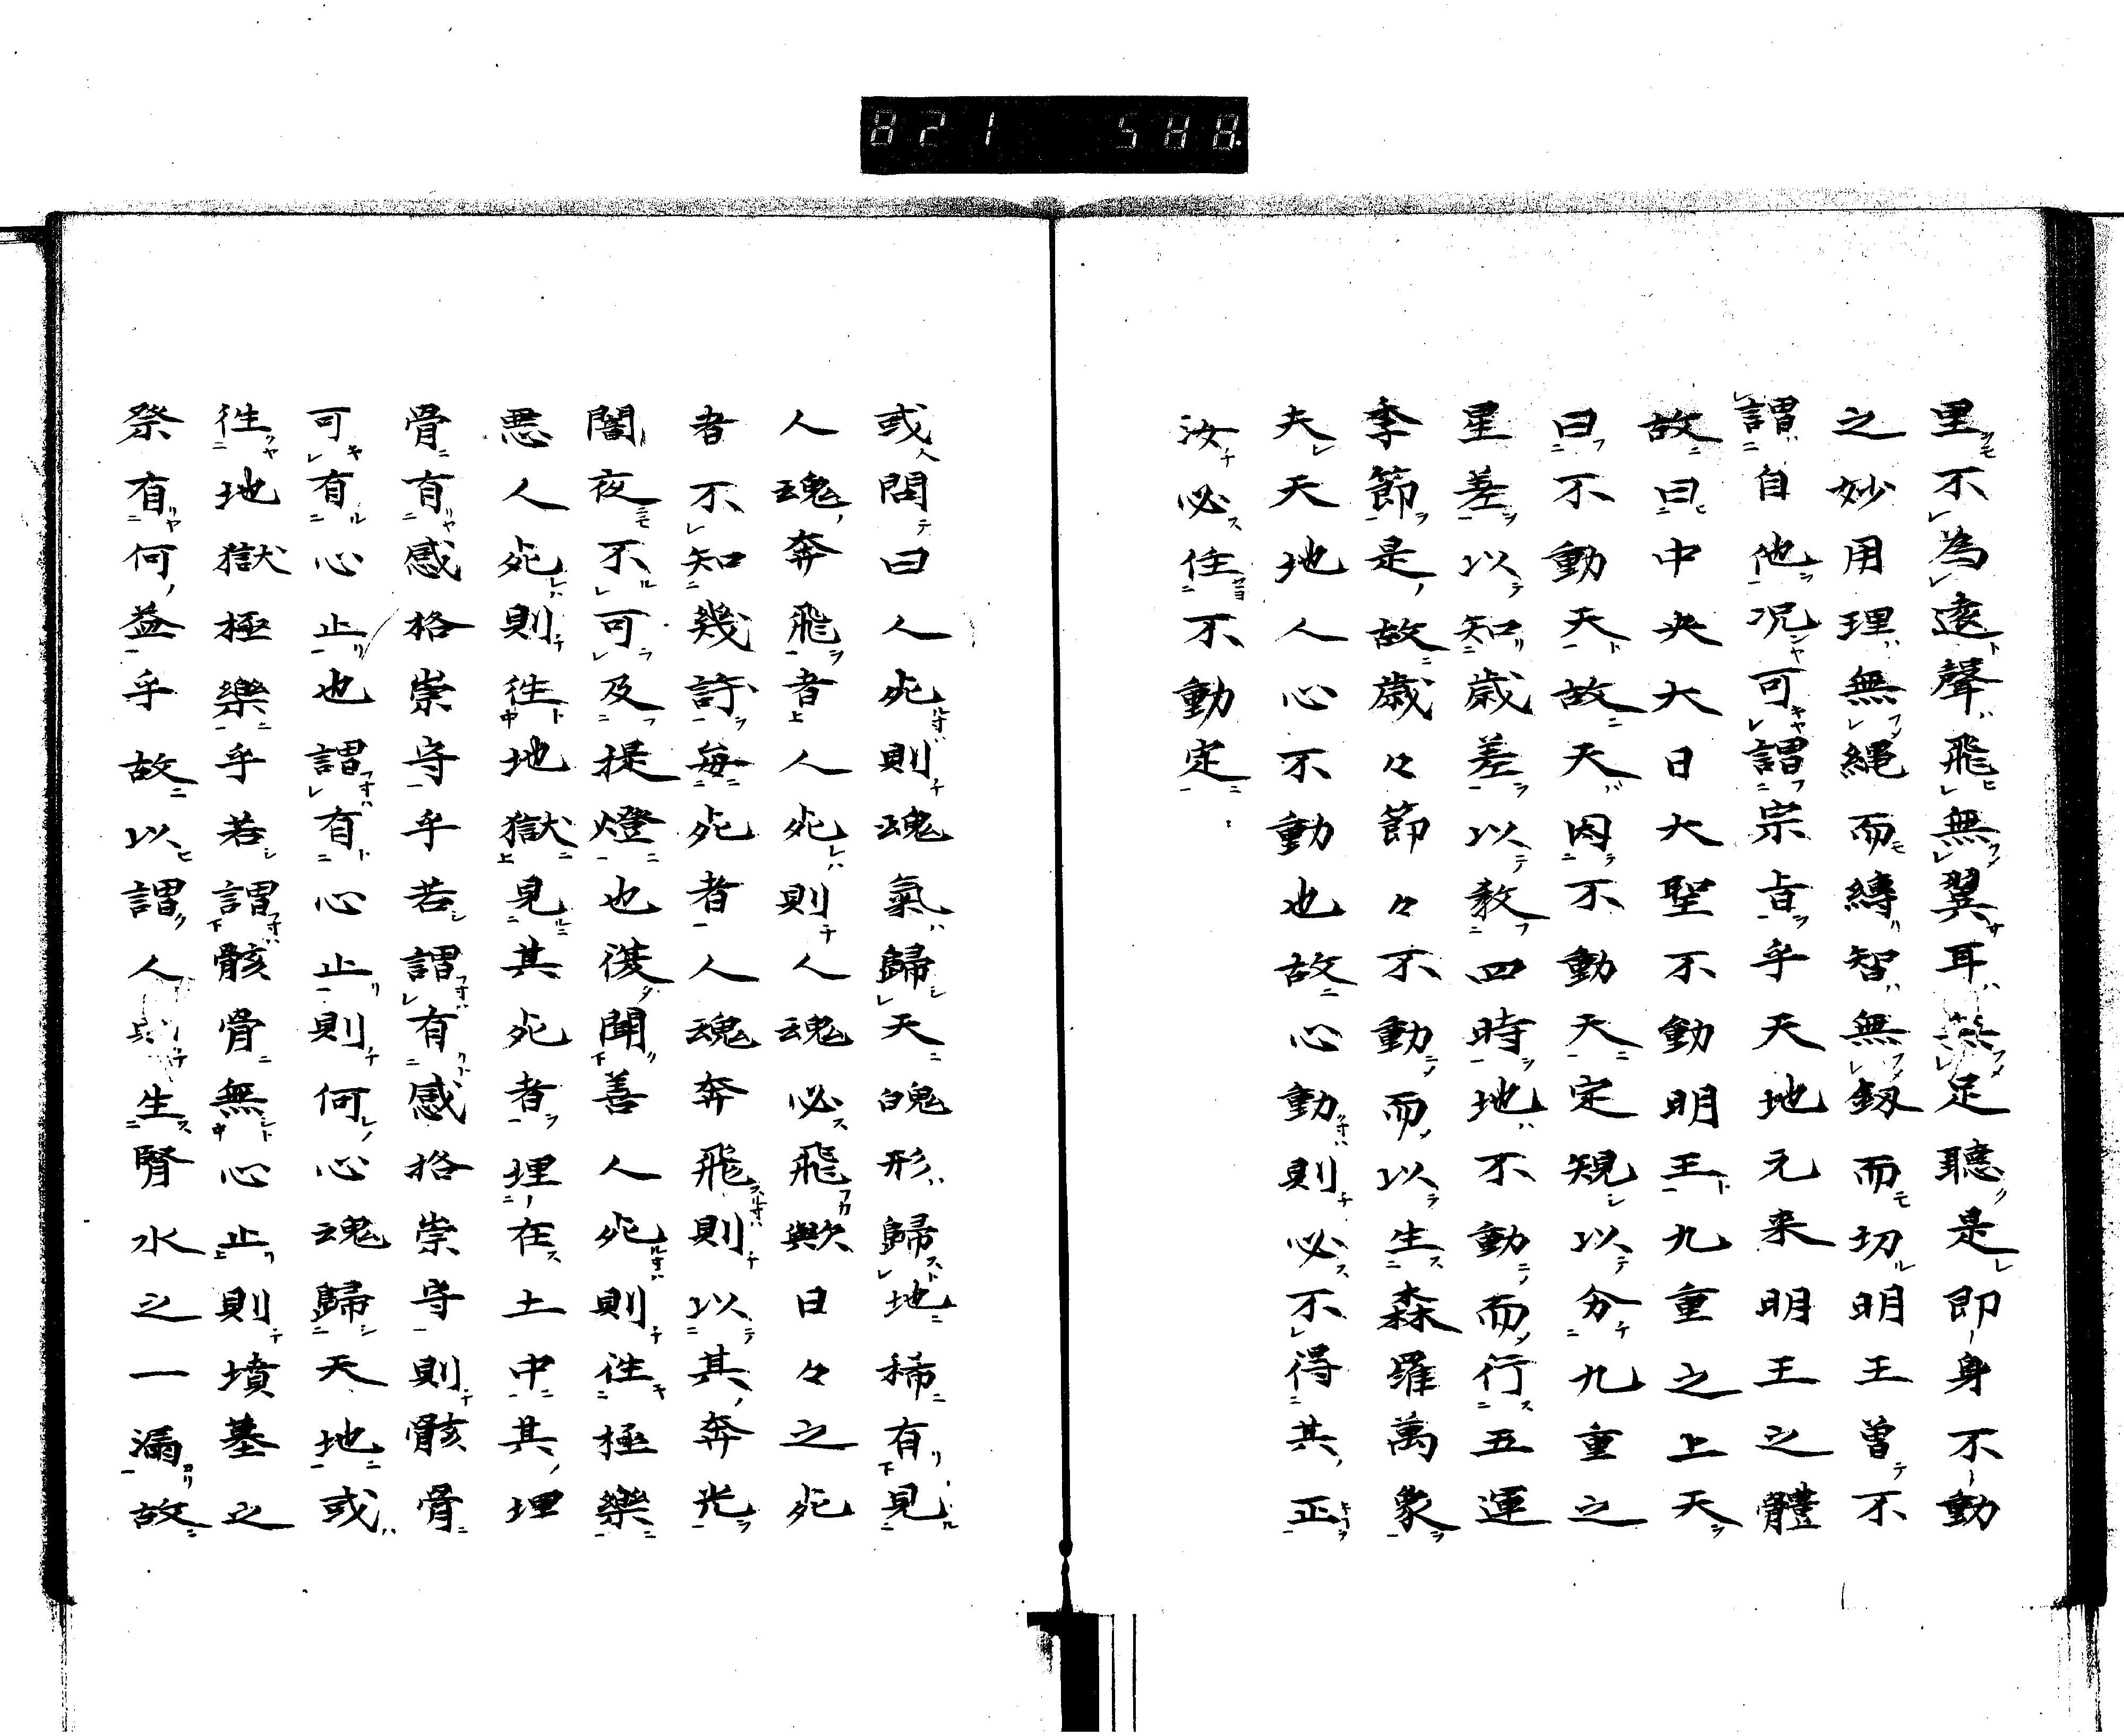 821 588.
里不為遠聲飛無翼耳無足聽是即身不動
之妙用理無繩而縛智無釼而切明王曾不
謂自他况可謂宗旨乎天地元来明王之體
故曰中央大日大聖不動明王九重之上天
曰不動天故天因不動天定規以分九重之
星差以知歳差以教四時地不動而行五運
季節是故歳々節々不動而以生森羅萬象
夫天地人心不動也故心動則必不得其正
汝必住不動定
或問曰人死則魂氣歸天魄形歸地稀有見
人魂奔飛者人死則人魂必飛歟日々之死
者不知幾許毎死者人魂奔飛則以其奔光
闇夜不可及提燈也復聞善人死則徃極樂
悪人死則徃地獄見其死者埋在土中其埋
骨有感格崇守乎若謂有感格崇守則骸骨
可有心止也謂有心止則何心魂歸天地或
徃地獄極樂乎若謂骸骨無心止則墳墓之
祭有何益乎故以謂人則生腎水之一漏故